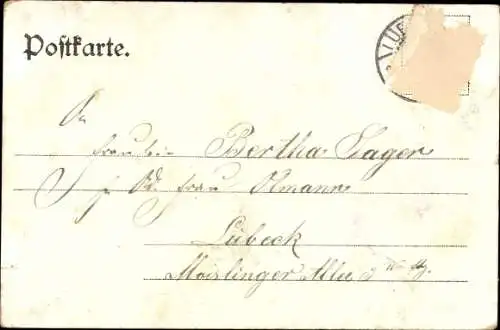 Postkarte.
LÜB
An
Fräulein Bertha Eager
Frau Olmann
Lübeck
Moislinger Allee